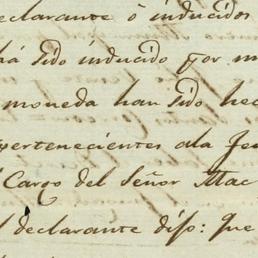 eclarante ô inducidos
há sido inducido por m
moneda han sido hec
pertenecientes ala Je
Cargo del Señor Mac
l declarante dijo: Que